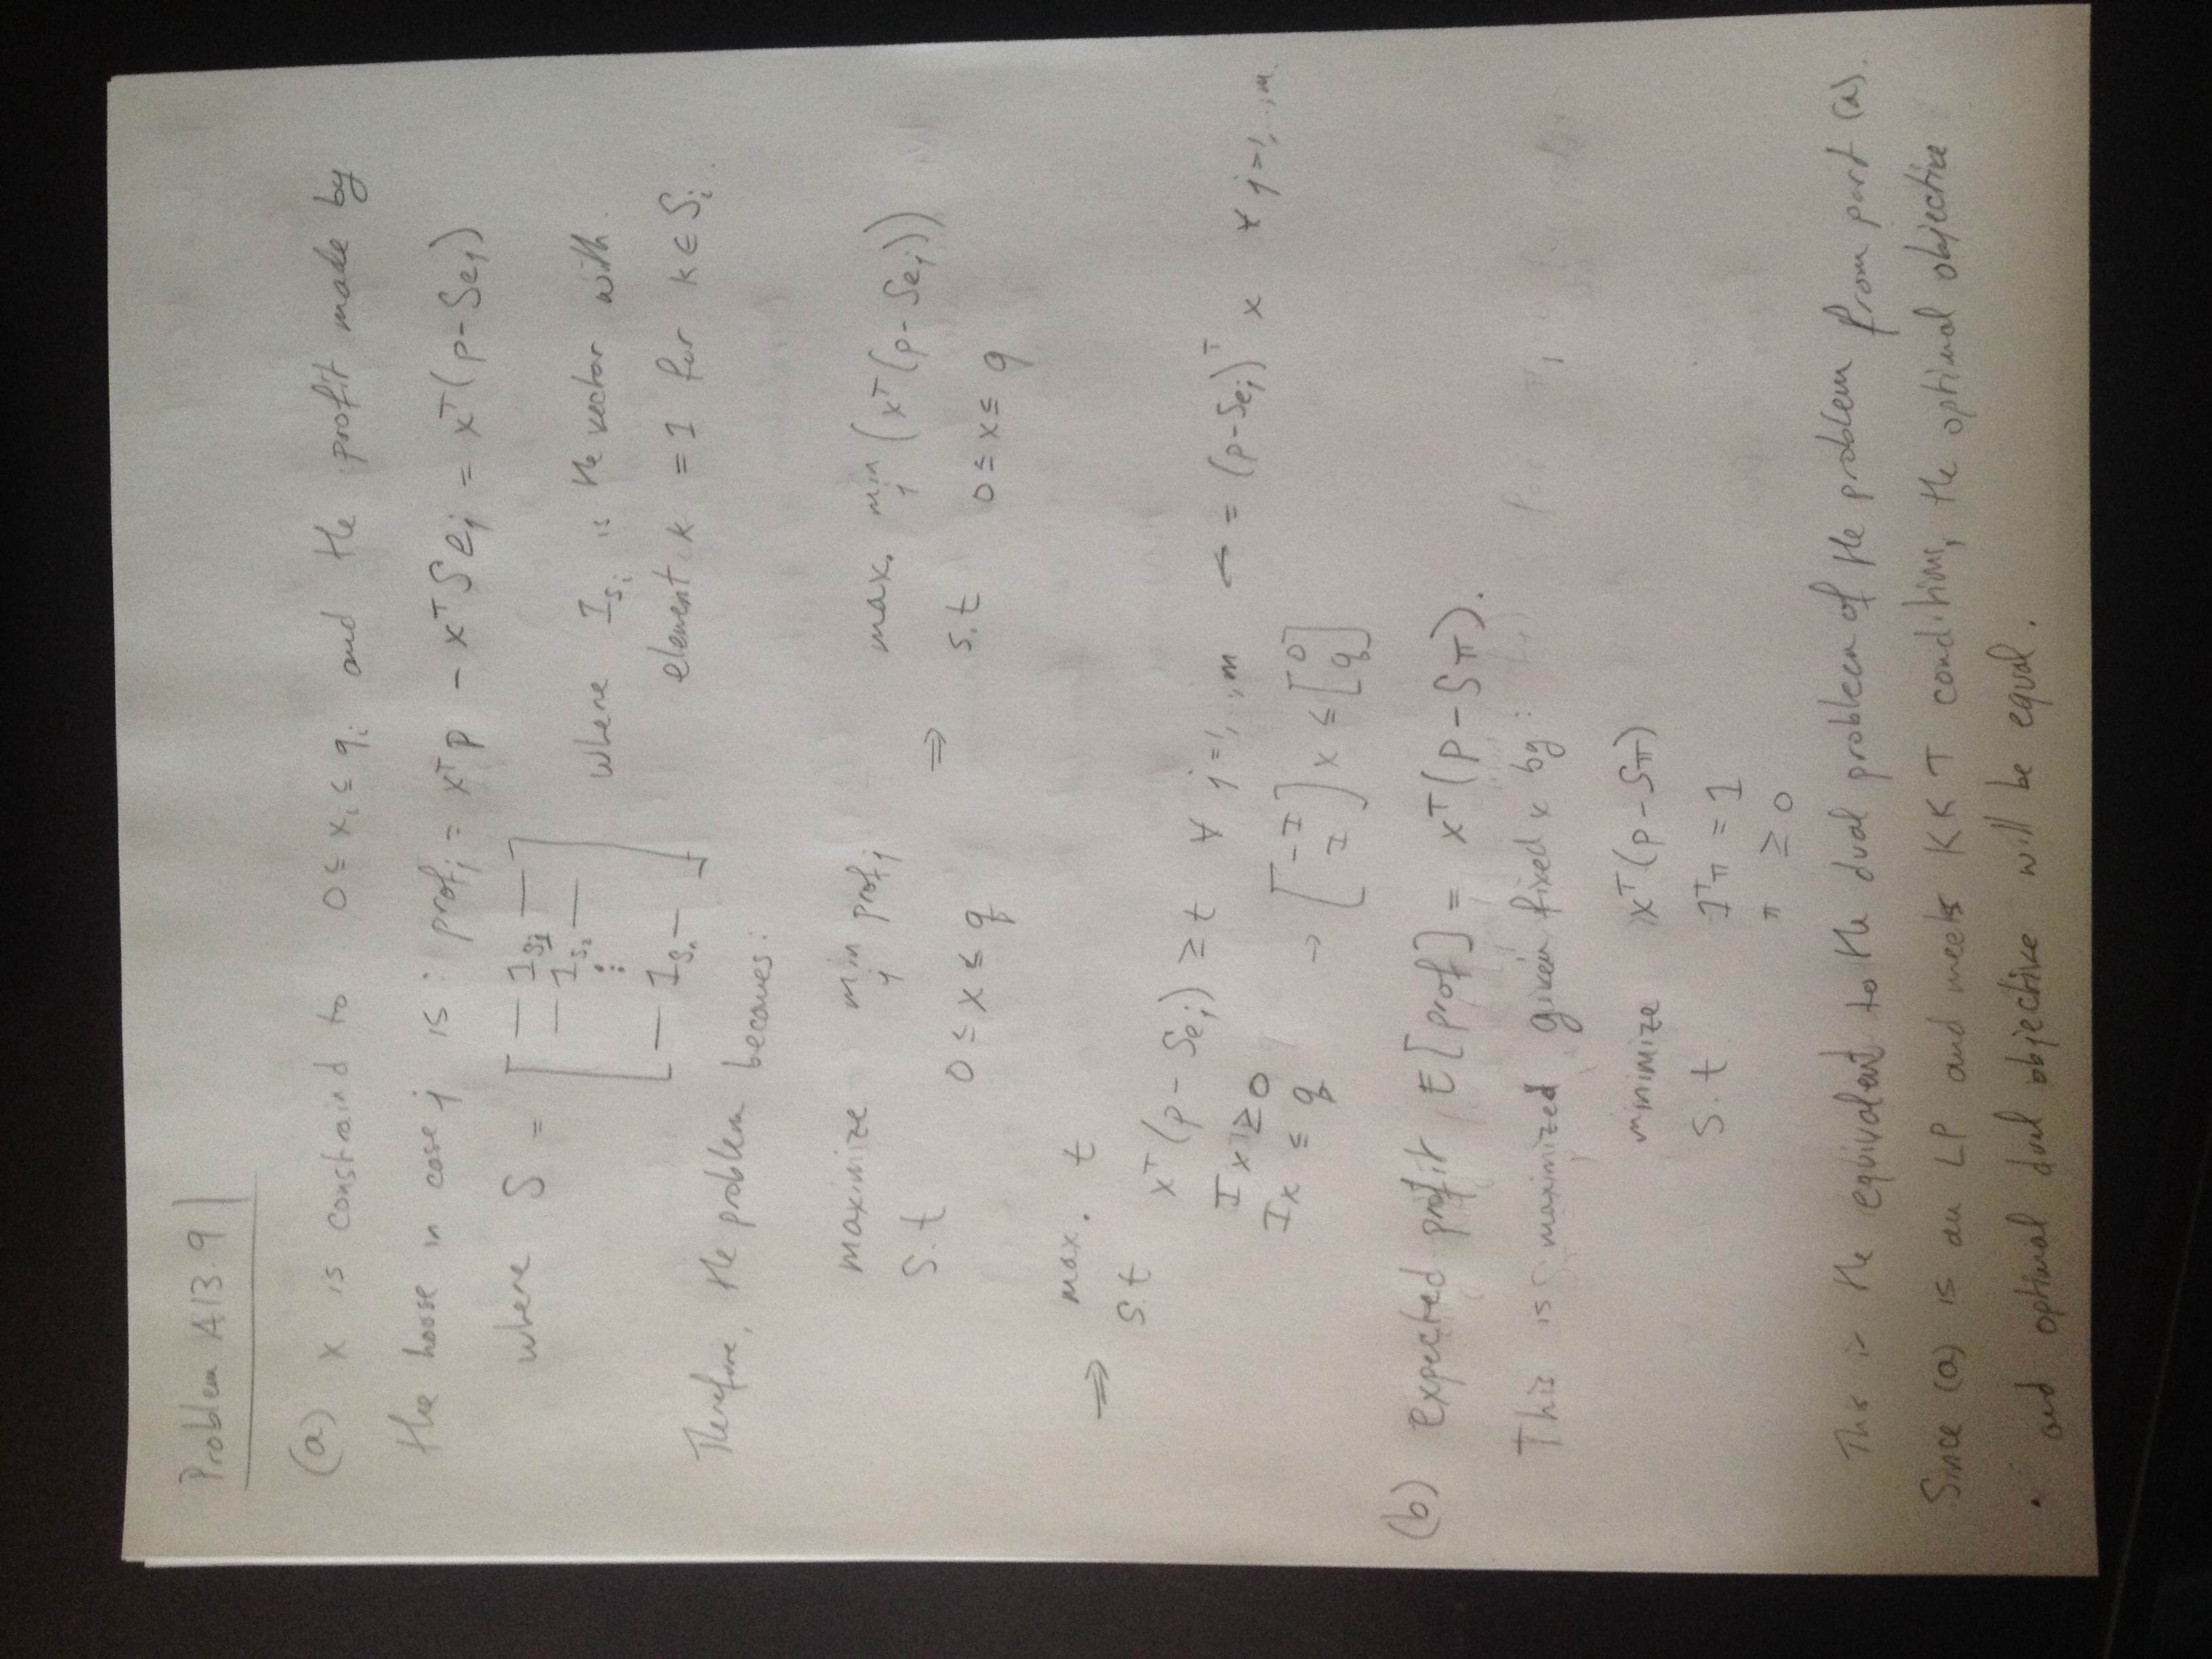 Problem A13.9
(a) x is constraind to 0 ≤ xᵢ ≤ qᵢ and the profit made by
the house in case j is: profⱼ = xᵀp - xᵀSeⱼ = xᵀ(p-Seⱼ)
where S = [ — 1_S₁ — — 1_S₂ — ⋮ — 1_Sₙ — ] where 1_Sᵢ is the vector with
element k = 1 for k ∈ Sᵢ.
Therefore, the problem becomes:
maximize min_j profⱼ
s.t
0 ≤ x ≤ q
⇒ max. min_j (xᵀ(p-Seⱼ))
s.t 0 ≤ x ≤ q
⇒ max. t
s.t
xᵀ(p-Seⱼ) ≥ t ∀ j=1,..,m ← = (p-Seⱼ)ᵀ x ∀ j=1,..,m.
Ix ≥ 0
Ix ≤ q → [-I I] x ≤ [0 q]
(b) expected profit E[prof] = xᵀ(p-Sπ).
This is maximized given fixed x by:
minimize xᵀ(p-Sπ)
s.t 1ᵀπ = 1
π ≥ 0
This is the equivalent to the dual problem of the problem from part (a).
Since (a) is an LP and meets KKT conditions, the optimal objective
and optimal dual objective will be equal.